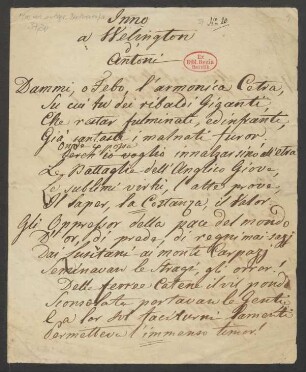 Inno
No 10.
a Welington
d'
Antoni
Ex
Bibl. Regia
Berolin.
Dammi, o Febo, l'armonica Cetra,
Su cui tu dei ribaldi Giganti,
Che restar fulminati, ed infranti,
Già cantasti i malnati furor
Ond'è
Perch'io voglio innalzar sino all'etra
Le Battaglie dell'Anglico Giove,
Le sublimi virtù, l'alte prove
Il saper, la Costanza, il valor.
Gli Oppressor della pace del mondo
D'or, di prede, di regni mai sazj
Dai Lusitani ai monti Carpazj
Seminavan le stragi, gli orror!
Delle ferree Catene il vil pondo
portavan le Genti
E a lor Sol taciturni lamenti
Permetteva l'immenso timor!